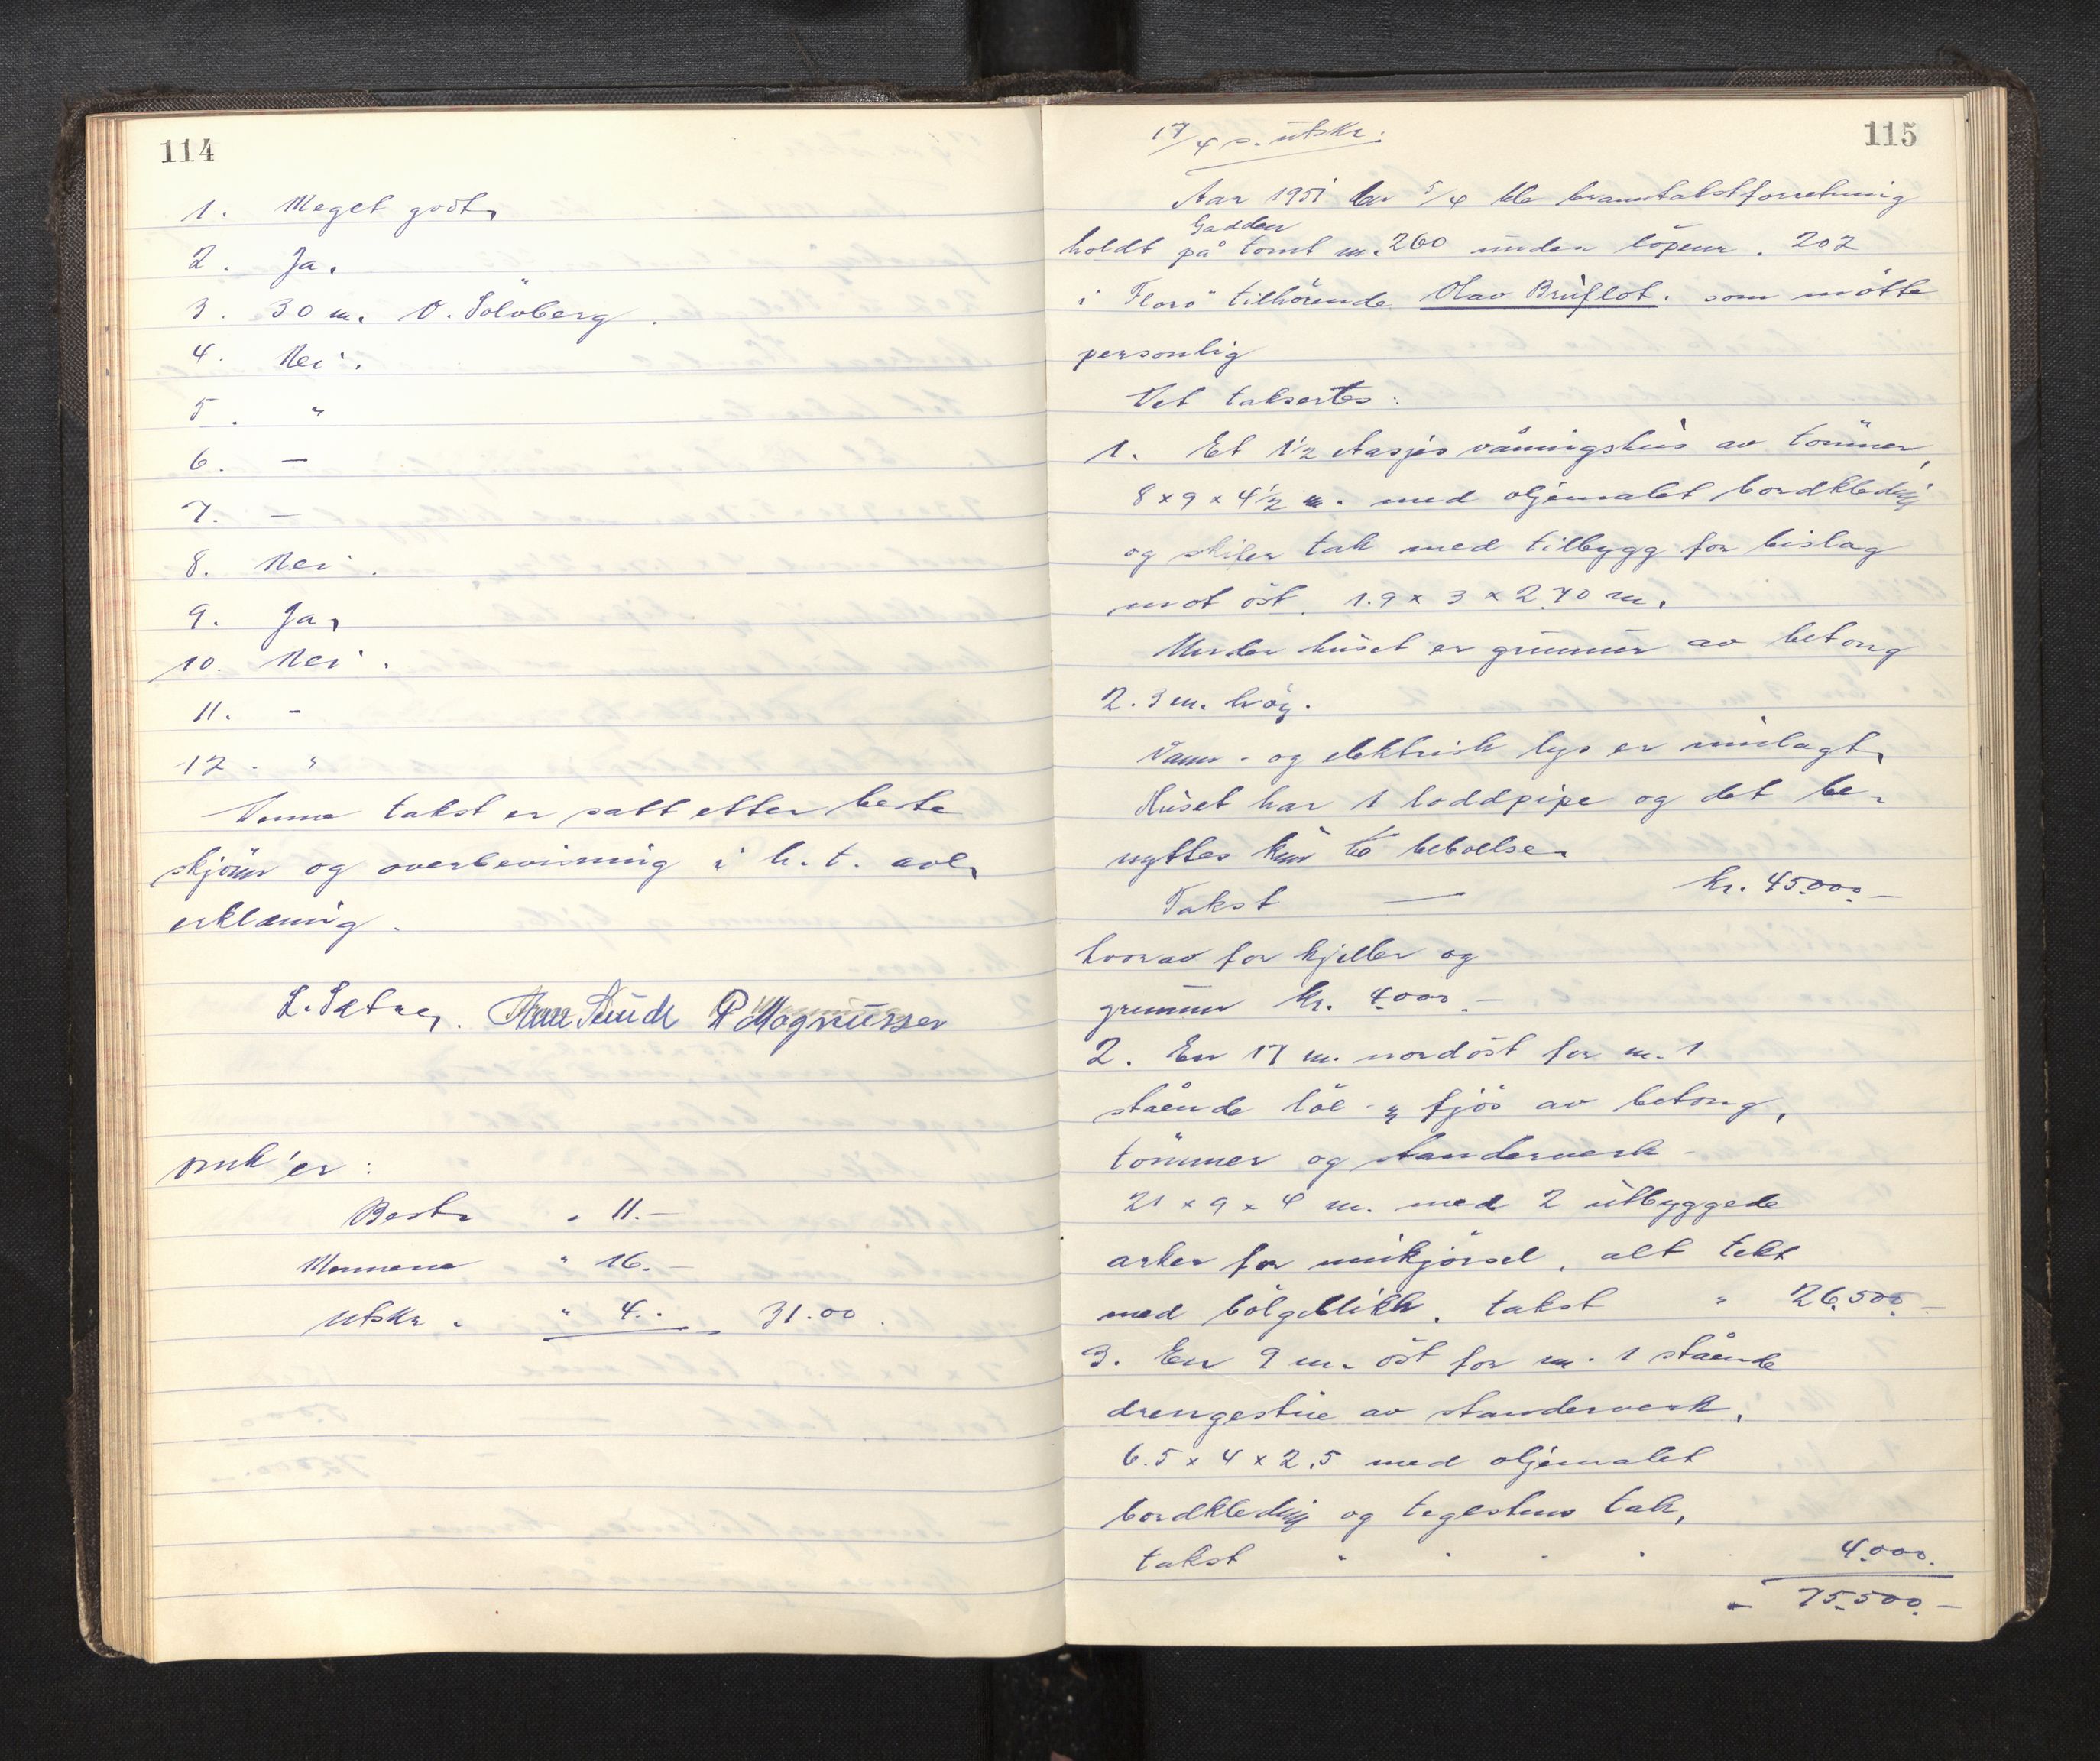 114
1. Meget godt,
2. Ja.
3. 30 m. O. Sölvberg.
4. Nei.
5. "
6. —
7. —
8. Nei.
9. Ja,
10. Nei.
11. -
12. "
Denne takst er satt etter beste
skjönn og overbevisning i h. t. avl.
erklæring.
L. Sætre, Sunde P Magnussen
omk'er:
Best. " 11.—
Mennene " 16.—
Utskr. " 4.- 31.00.
115
17/4 s. utskr:
Aar 1951 den 5/4 ble branntakstforretning
Gadden
holdt på tomt nr. 260 under löpenr. 202
i Florö tilhörende Olav Bruflot. som mötte
personlig
Det taksertes:
1. Et 1½ etasjes våningshus av tömmer,
8 x 9 x 4½ m. med oljemalet bordkledning
og skifer tak med tilbygg for bislag
mot öst. 1.9 x 3 x 2.70 m.
Under huset er grunnur av betong
2.3 m. höy.
Vann- og elektrisk lys er innlagt,
Huset har 1 loddpipe og det be-
nyttes kun til beboelse.
Takst — kr. 45.000.—
hvorav for kjeller og
grunnur kr. 4.000.—
2. En 17 m. nordöst for nr. 1
stående löe- og fjös av betong,
tömmer og standerverk
21 x 9 x 4 m. med 2 utbyggede
arker for innkjörsel, alt tekt
med bölgeblikk. takst " 26.500.—
3. En 9 m. öst for nr. 1 stående
drengestue av standerverk,
6.5 x 4 x 2.5 med oljemalet
bordkledning og teglstens tak,
takst " " " " 4.000.
- 75.500.—